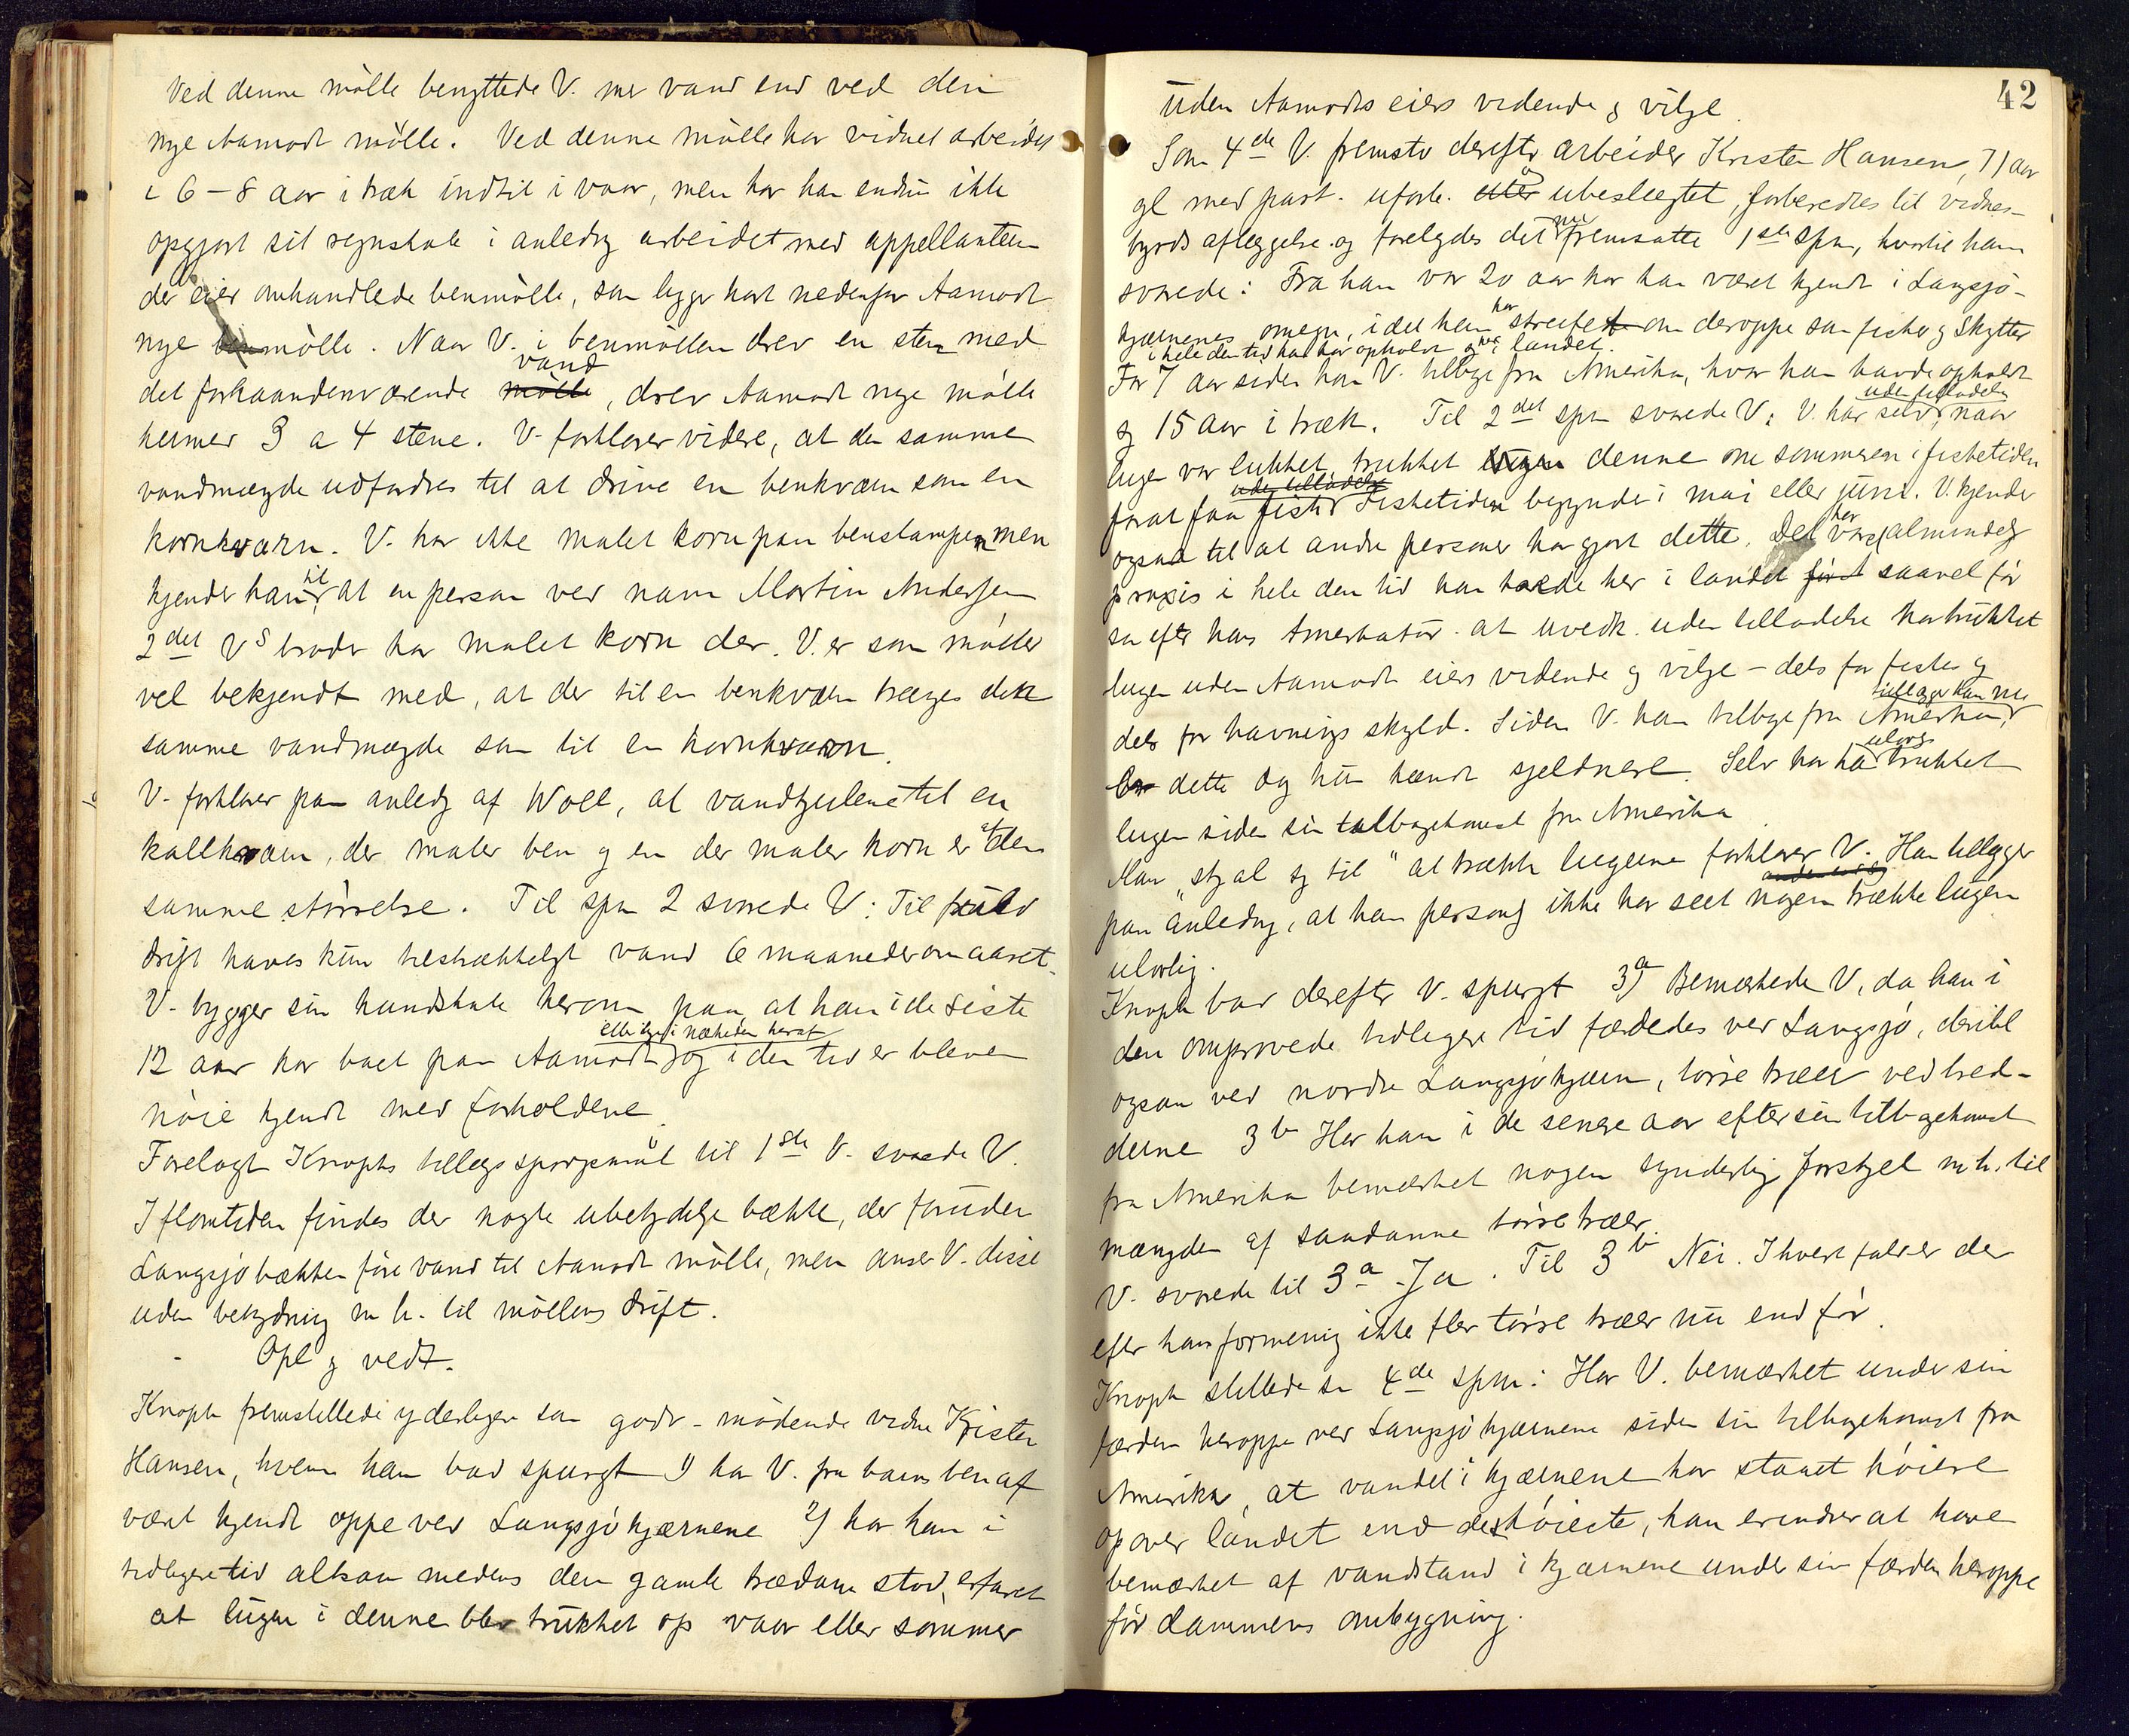 Ved denne mölle benyttede V. mer vand end ved den
nye Aamodt mölle. Ved denne mölle har vidnet arbeidet
i 6-8 aar i træk indtil i vaar, men har han endnu ikke
opgjort sit regnskab i anledng arbeidet med appellanten
der eier omhandlede benmölle, som ligger kort nedenfor Aamodt
nye benmölle. Naar V. i benmöllen drev en sten med
vand
det forhaandenværende mölle, drev Aamodt nye mölle
hermed 3 a 4 stene. V. forklarer videre, at den samme
vandmængde udfordres til at drive en benkværn som en
kornkværn. V. har ikke malet korn paa benstampen men
kjender han til, at en person ved navn Martin Andersen
2det Vs broder har malet korn der. V. er som möller
vel bekjendt med, at der til en benkværn træges den
samme vandmægde som til en kornkværn.
V. forklarer paa anledg af Woll, at vandhjulene til en
kallkværn, der maler ben og en der maler korn er af den
samme störrelse. Til spm 2 svarede V: Til fuld
drift haves kun tilstrækkeligt vand 6 maaneder om aaret.
V. bygger sin kundskab herom paa, at han i de siste
eller lige i nærheden heraf
12 aar har boet paa Aamodt og i den tid er bleven
nöie kjendt med forholdene.
Forelagt Knophs tillægsspörgsmaal til 1ste V. svarede V.
I flomtiden findes der nogle ubetydelige bække, der foruden
Langsjöbækken före vand til Aamodt mölle, men anser V. disse
uden betydning m h. til möllens drift.
Opl og vedt.
Knoph fremstillede yderligere som godv-mödende vidne Krister
Hansen, hvem han bad spurgt 1) har V. fra barnsben af
været kjendt oppe ved Langsjökjærnene 2) har han i
tidligere tid altsaa medens den gamle trædam stod, erfaret
at lugen i denne blev trukket op vaar eller sommer
42
uden Aamodts eiers vidende og vilge.
Som 4de V. fremstod derefter arbeider Krister Hansen, 71 aar
gl med part. uforb. og ubeslægtet, forberedtes til vidnes-
byrds aflæggelse og forelagdes det nu fremsatte 1ste spm, hvortil han
svarede: Fra han var 20 aar har han været kjendt i Langsjö-
kjærnenes omegn, idet han har streifet om deroppe som fisker og skytter
i hele den tid han har opholdt sig her i landet.
For 7 aar siden kom V. tilbage fra Amerika, hvor han havde opholdt
uden tilladelse
sig 15 aar i træk. Til 2det spm svarede V: V. har selv, naar
lugen var lukket, trukket lugen denne om sommeren i fisketiden
uden tilladelse
forat faa fisk. Fisketiden begynder i mai eller juni. V. kjender
ogsaa til at andre personer har gjort dette. Det har været almindelig
praxis i hele den tid han havde her i landet först saavel för
som efter hans Amerikatur at uvedk. uden tilladelse har trukket
lugen uden Aamodt eiers vidende og vilge - dels for fisker og
tillægger han nu
dels for havnings skyld. Siden V. kom tilbage fra Amerika,
er dette dog kun hændt sjeldnere. Selv har han ulovlig trukket
lugen siden sin tilbagekomst fra Amerika.
Man "stjal sig til" at trække lugerne forklarer V. Han tillægger
paa anledng, at han personlig ikke har seet nogen trække lugen
ulovlig.
Knoph bad derefter V. spurgt 3a) Bemærkede V, da han i
den omprovede tidligere tid færdedes ved Langsjö, dertil
ogsaa ved nordre Langsjökjærn, törre træer ved bred-
derne 3b Har han i de senere aar efter sin tilbagekomst
fra Amerika bemærket nogen synderlig forskjel m.h. til
mængden af saadanne törre træer.
V. svarede til 3a Ja. Til 3b Nei. I hvert fald er der
efter hans formening ikke flere törre træer nu end för.
Knoph stillede sa 4de spm: Har V. bemærket under sin
færden heroppe ved Langsjökjærnene siden sin tilbagekomst fra
Amerika, at vandet i kjærnene har staaet höiere
opover landet end det höieste, han erindrer at have
bemærket af vandstand i kjærnene under sin færden heroppe
för dammens ombygning.